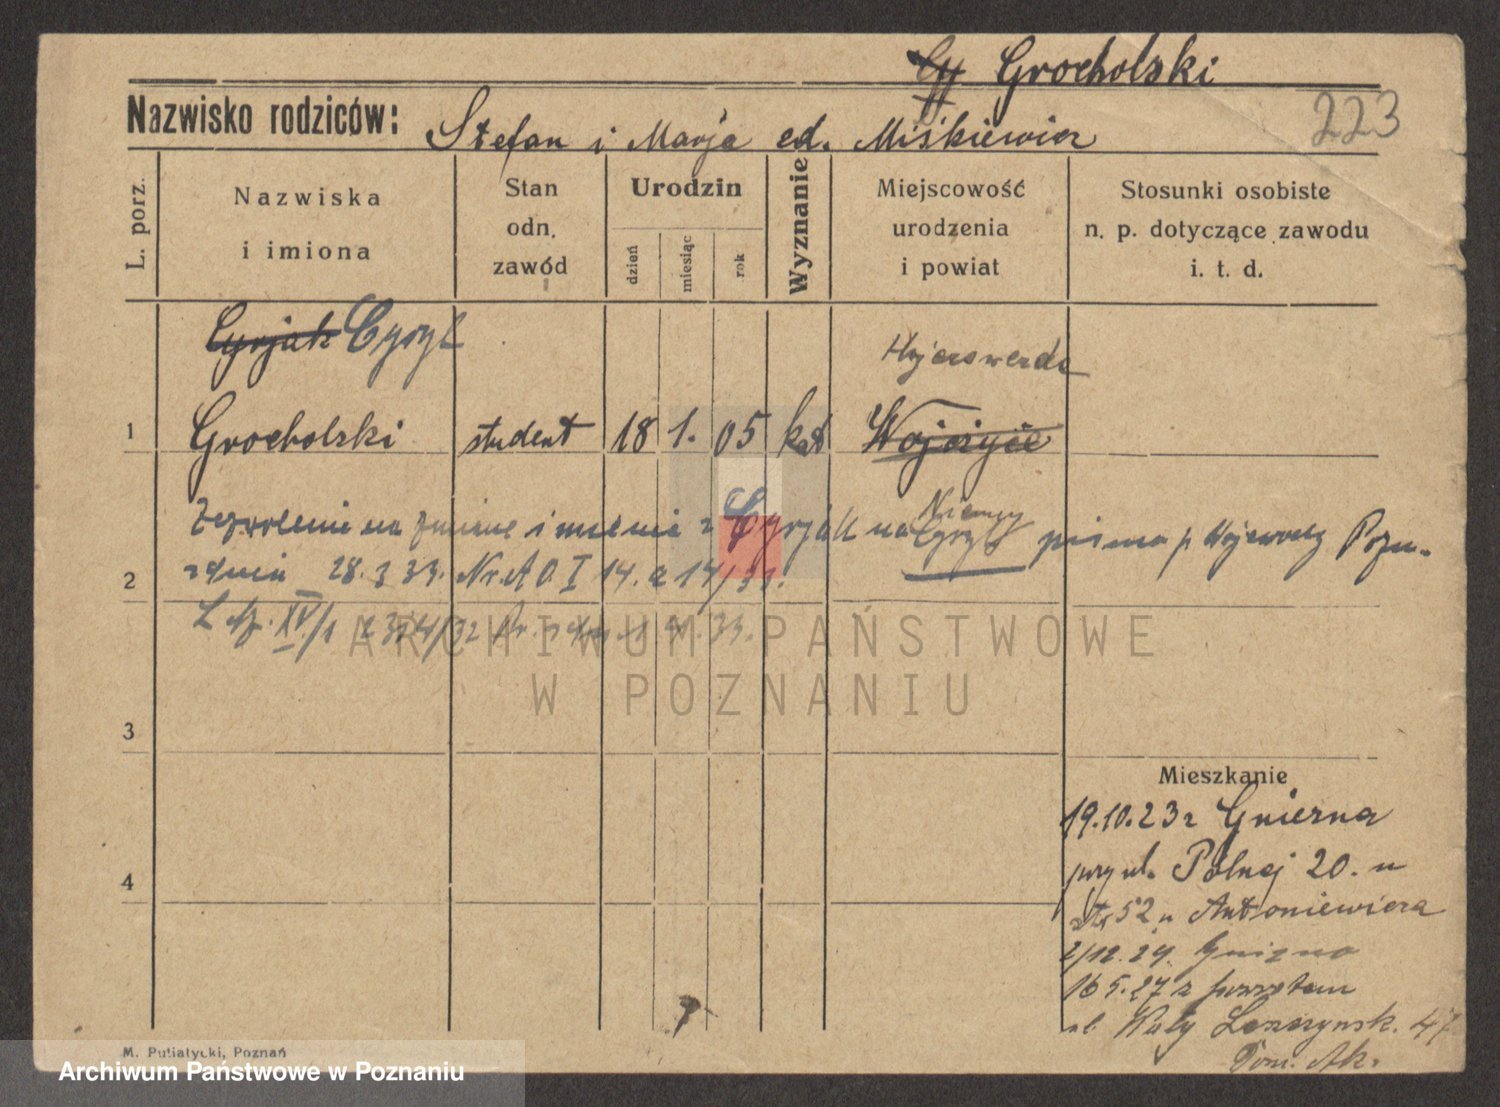 Grocholski
223
Nazwisko rodziców: Stefan i Marja ed. Miśkiewicz
L. porz.
Nazwiska
i imiona
Stan
odn.
zawód
Urodzin
dzień
miesiąc
rok
Wyznanie
Miejscowość
urodzenia
i powiat
Stosunki osobiste
n. p. dotyczące zawodu
i. t. d.
Cyrjak Cyryl
Hojerswerda
1 Grocholski student 18 1. 05 kat Wojeryce
Niemcy
Zezwolenie na zmianę imienia z Cyrjak na Cyryl pismo p Wojewody Pozn.
2 z dnia 28. 3 33. Nr. A O. I 14. a 14/33.
L. dz. XV/1 2324/32 33.
3
4
Mieszkanie
19.10.23 z Gniezna
przy ul. Polnej 20. u
str 52 u Antoniewicza
2/12.24. Gniezno
16 5.27 z powrotem
ul. Wały Leszczyńsk. 47
Dom. Ak.
M. Putiatycki, Poznań
ARCHIWUM PAŃSTWOWE
W POZNANIU
Archiwum Państwowe w Poznaniu